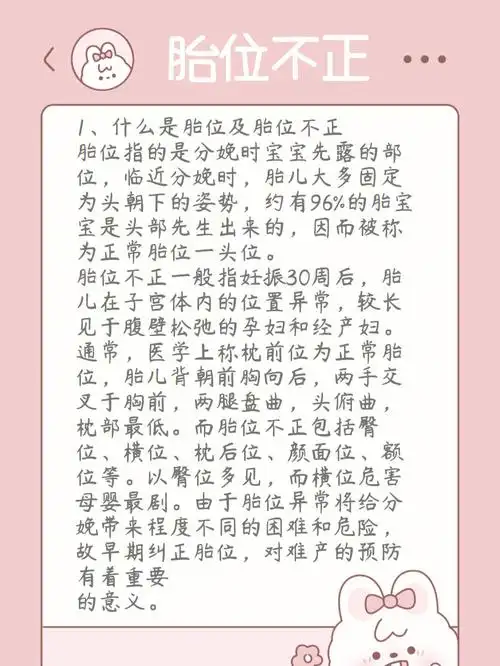 胎位不正
1、什么是胎位及胎位不正
胎位指的是分娩时宝宝先露的部
位，临近分娩时，胎儿大多固定
为头朝下的姿势，约有96%的胎宝
宝是头部先生出来的，因而被称
为正常胎位一头位。
胎位不正一般指妊振30周后，胎
儿在子宫体内的位置异常，较长
见于腹壁松弛的孕妇和经产妇。
通常，医学上称枕前位为正常胎
位，胎儿背朝前胸向后，两手交
叉于胸前，两腿盘曲，头俯曲，
枕部最低。而胎位不正包括臀
位、横位、枕后位、颜面位、额
位等。以臀位多见，而横位危害
母婴最剧。由于胎位异常将给分
娩带来程度不同的困难和危险，
故早期纠正胎位，对难产的预防
有着重要
的意义。